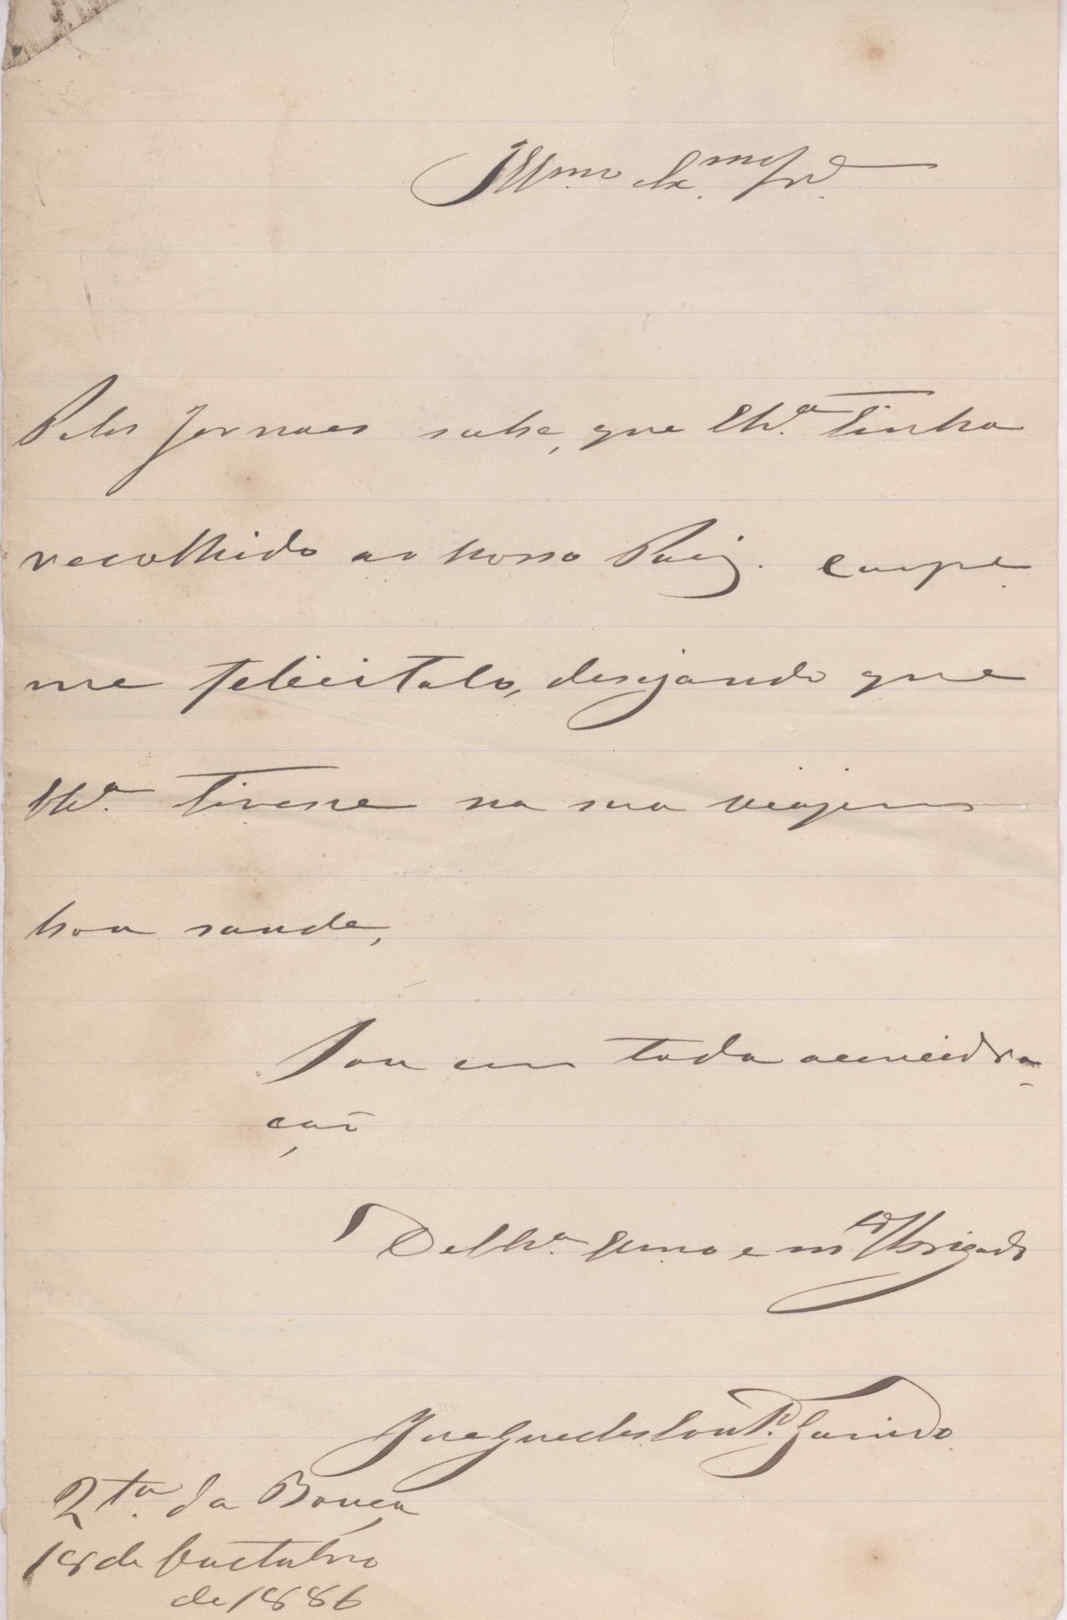 Illmo Ex.mo Sr.
Pelos Jornaes sube, que V.Ex.ª tinha
recolhido ao nosso Paiz. cumpre
me felicitalo, desejando que
V.Ex.ª tivesse na sua viajem
boa saude,
Sou com toda a concidra-
ção
De V.Ex.ª e m.to Obrigado
Guedes
Q.ta da Bouça
18 de Outubro
de 1886